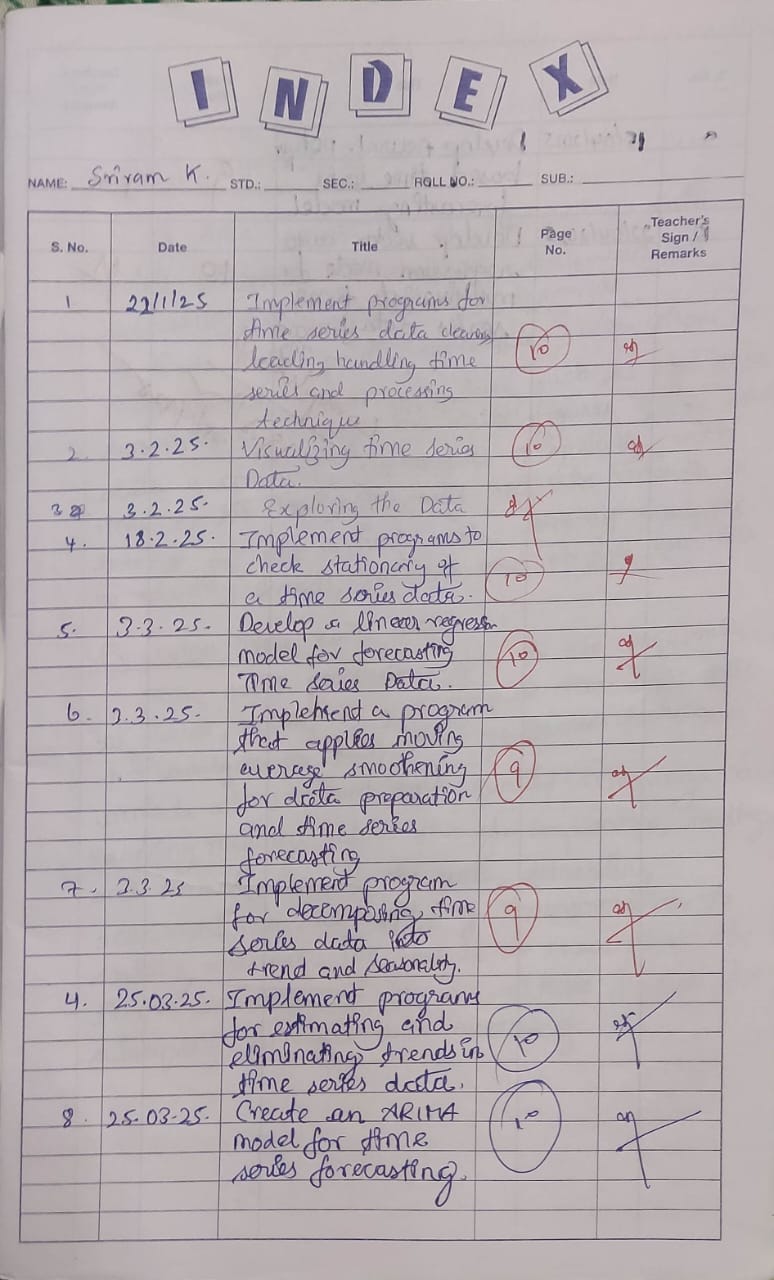 INDEX
NAME: Sriram K. STD.: SEC.: ROLL NO.: SUB.:
S. No. Date Title Page No. Teacher's Sign / Remarks
1 22/1/25 Implement programs for
time series data cleaning,
loading handling time 10
series and processing
technique
2. 3.2.25. Visualizing time series 10
Data.
3 3.2.25. Exploring the Data
4. 18.2.25. Implement programs to
check stationary of 10
a time series data.
5. 3.3.25. Develop a linear regression
model for forecasting 10
Time series Data.
6. 3.3.25. Implement a program
that applies moving
average smoothening 9
for data preparation
and time series
forecasting
7. 3.3.25 Implement program
for decomposing time 9
series data into
trend and seasonality.
4. 25.03.25. Implement program
for estimating and
eliminating trends in 10
time series data.
8. 25.03.25. Create an ARIMA 10
model for time
series forecasting.